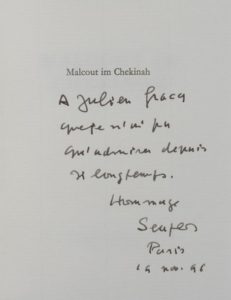 Malcout im Chekinah
A Julien Gracq
que je n'ai pu
qu'admirer depuis
si longtemps.
Hommage
Paris
nov. 96